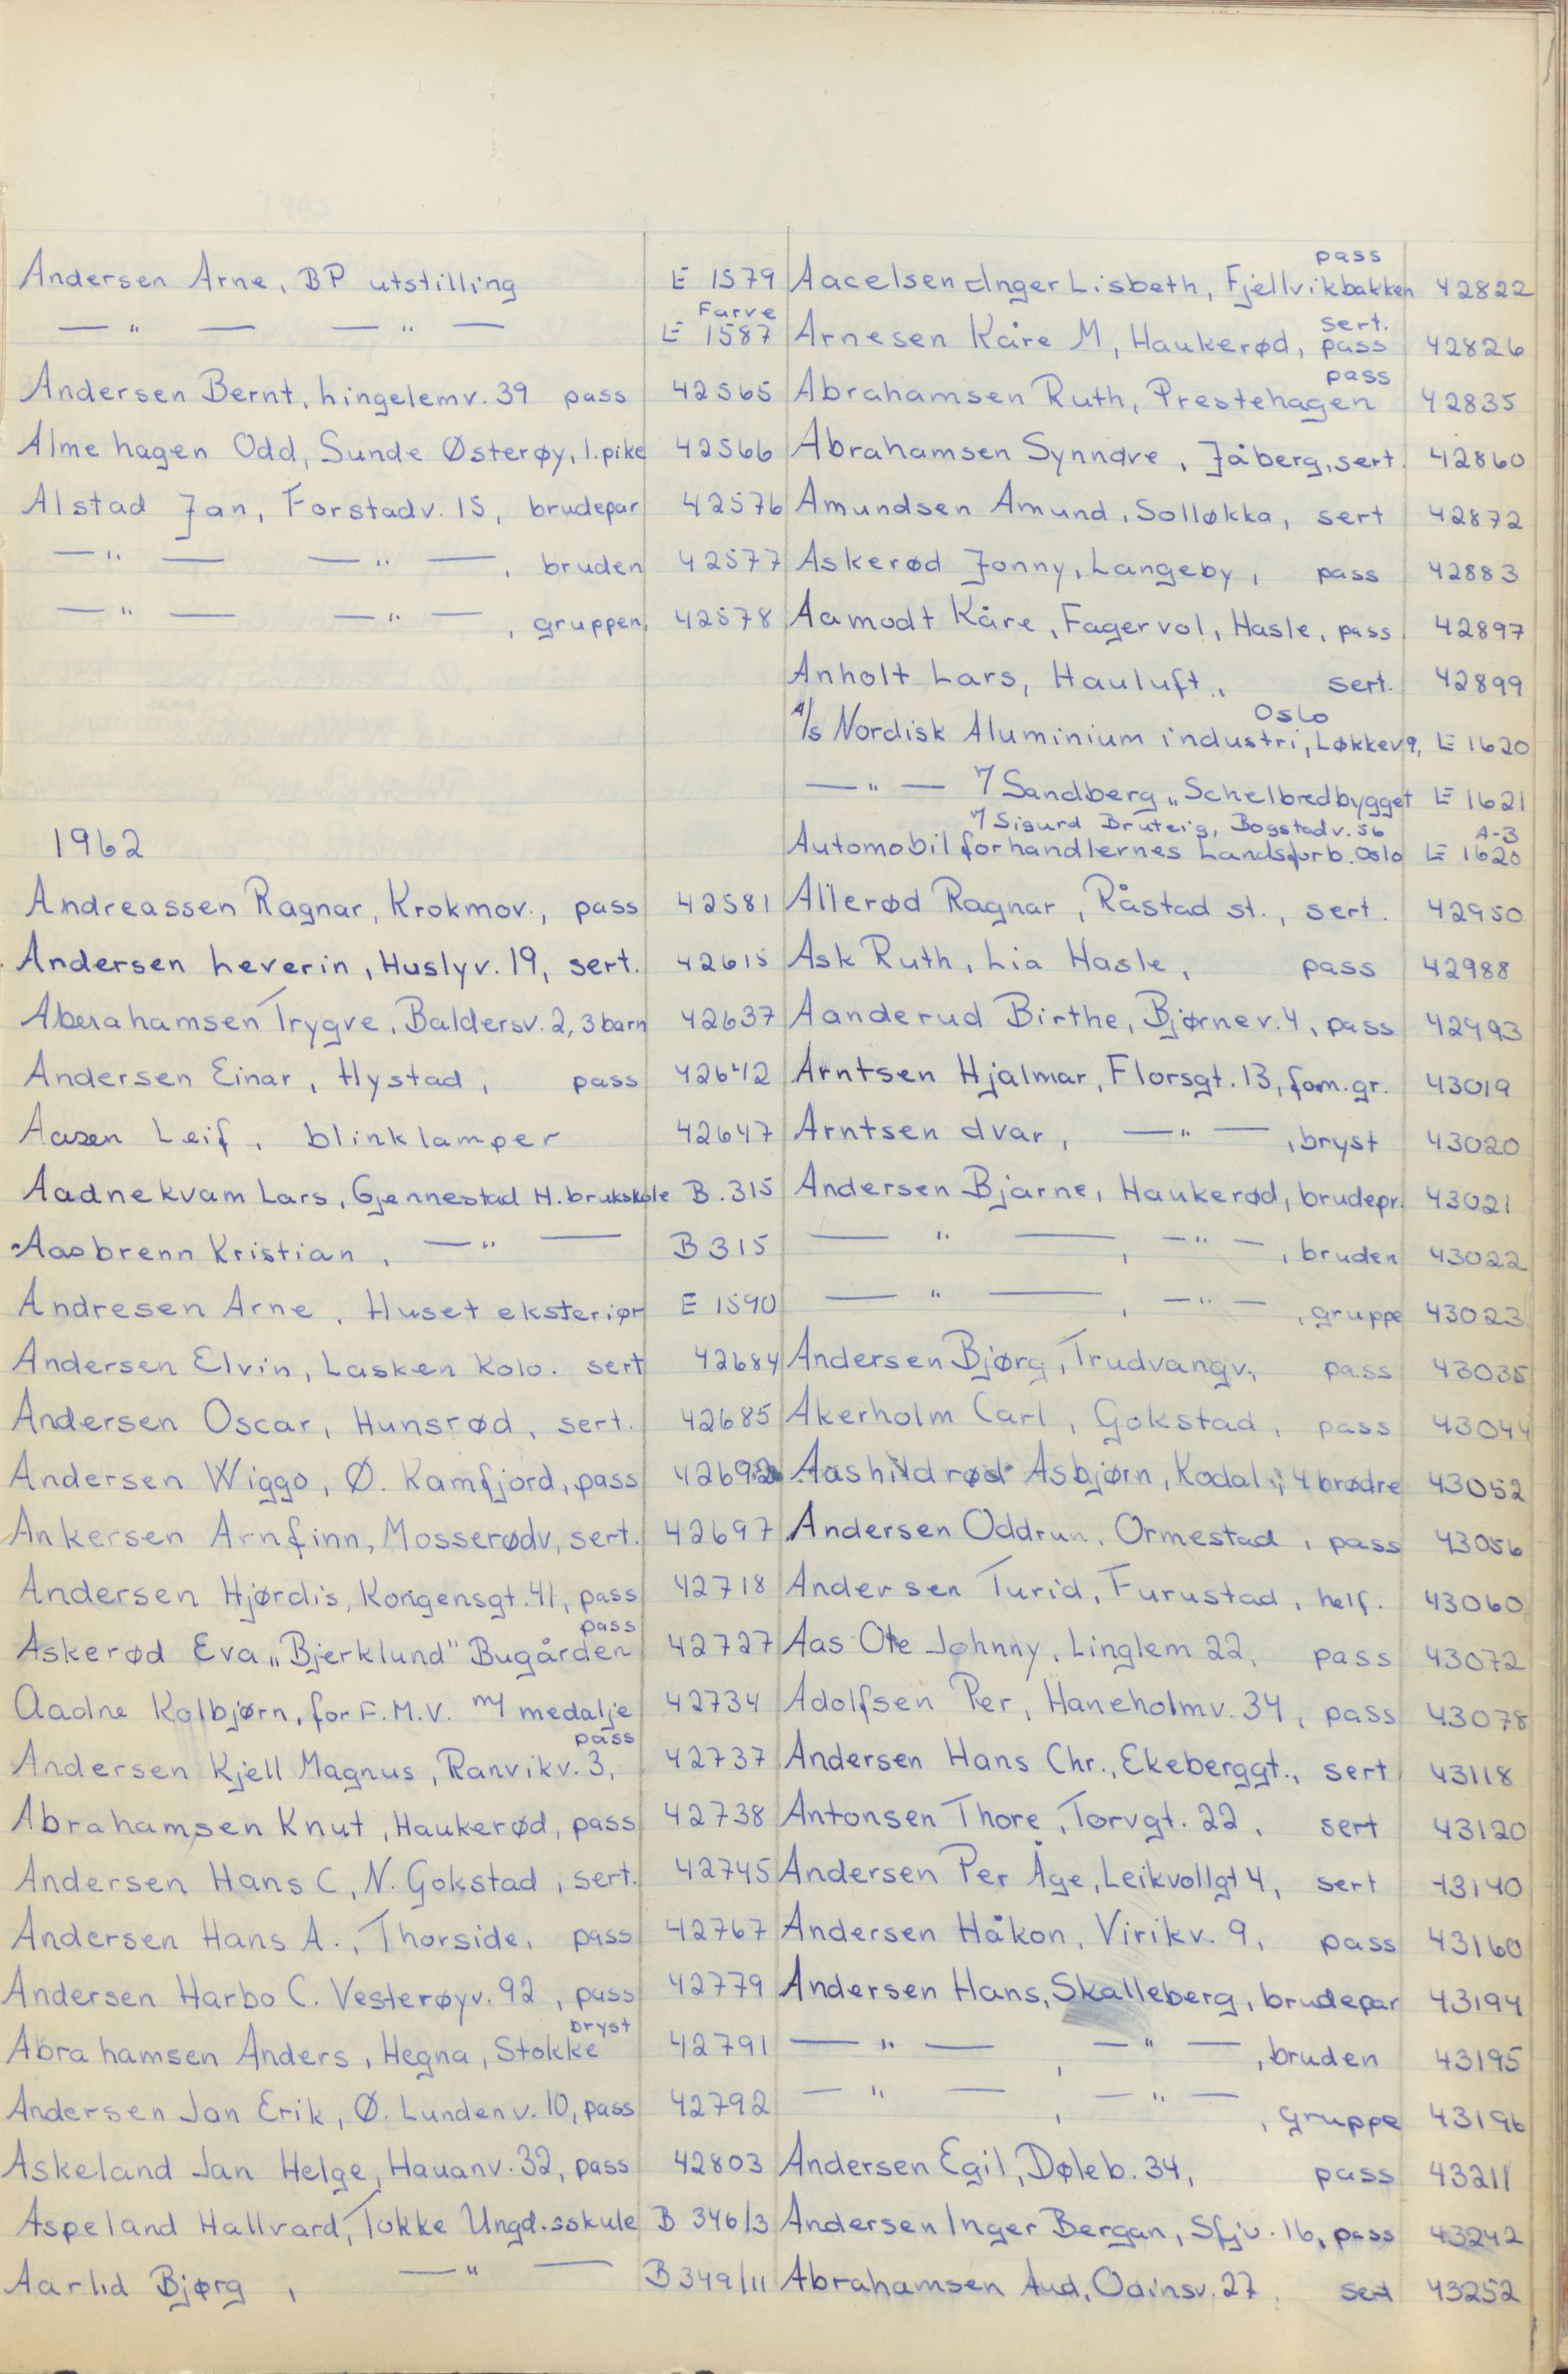 Andersen Arne, BP utstilling E 1579
— " — — " — Farve E 1587
Andersen Bernt, Lingelemv. 39 pass 42565
Almehagen Odd, Sunde Østerøy, 1. pike 42566
Alstad Jan, Forstadv. 15, brudepar 42576
— " — — " —, bruden 42577
— " — — " —, gruppen, 42578
1962
Andreassen Ragnar, Krokmov., pass 42581
Andersen Leverin, Huslyv. 19, sert. 42615
Aberahamsen Trygve, Baldersv. 2, 3 barn 42637
Andersen Einar, Hystad, pass 42642
Aasen Leif, blinklamper 42647
Aadnekvam Lars, Gjennestad H. brukskole B. 315
Aasbrenn Kristian, — " — B 315
Andresen Arne, Huset eksteriør E 1590
Andersen Elvin, Lasken Kolo. sert 42684
Andersen Oscar, Hunsrød, sert. 42685
Andersen Wiggo, Ø. Kamfjord, pass 42692
Ankersen Arnfinn, Mosserødv, sert. 42697
Andersen Hjørdis, Kongensgt. 41, pass 42718
Askerød Eva „Bjerklund" Bugården pass 42727
Aadne Kolbjørn, for F.M.V. m/ medalje 42734
Andersen Kjell Magnus, Ranvikv. 3, pass 42737
Abrahamsen Knut, Haukerød, pass 42738
Andersen Hans C, N. Gokstad, sert. 42745
Andersen Hans A., Thorside, pass 42767
Andersen Harbo C. Vesterøyv. 92, pass 42779
Abrahamsen Anders, Hegna, Stokke bryst 42791
Andersen Jan Erik, Ø. Lundenv. 10, pass 42792
Askeland Jan Helge, Hauanv. 32, pass 42803
Aspeland Hallvard, Tokke Ungd.sskule B 346/3
Aarlid Bjørg, — " — B 349/11
Aacelsen Inger Lisbeth, Fjellvikbakken pass 42822
Arnesen Kåre M, Haukerød, sert. pass 42826
Abrahamsen Ruth, Prestehagen pass 42835
Abrahamsen Synnøve, Jåberg, sert. 42860
Amundsen Amund, Solløkka, sert 42872
Askerød Jonny, Langeby, pass 42883
Aamodt Kåre, Fagervol, Hasle, pass 42897
Anholt Lars, Hauluft, sert. 42899
A/s Nordisk Aluminium industri, Løkkev 9, Oslo E 1620
— " — v/ Sandberg „Schelbredbygget E 1621
v/ Sigurd Bruteig, Bogstadv. 56 A-3
Automobilforhandlernes Landsforb. Oslo E 1620
Allerød Ragnar, Råstad st., sert. 42950
Ask Ruth, Lia Hasle, pass 42988
Aanderud Birthe, Bjørnev. 4, pass 42993
Arntsen Hjalmar, Florsgt. 13, fam. gr. 43019
Arntsen Ivar, — " —, bryst 43020
Andersen Bjarne, Haukerød, brudepr. 43021
— " —, — " —, bruden 43022
— " —, — " —, gruppe 43023
Andersen Bjørg, Trudvangv., pass 43035
Akerholm Carl, Gokstad, pass 43044
Aashildrød Asbjørn, Kodal, 4 brødre 43052
Andersen Oddrun, Ormestad, pass 43056
Andersen Turid, Furustad, helf. 43060
Aas Ole Johnny, Linglem 22, pass 43072
Adolfsen Per, Haneholmv. 34, pass 43078
Andersen Hans Chr., Ekeberggt., sert 43118
Antonsen Thore, Torvgt. 22, sert 43120
Andersen Per Åge, Leikvollgt 4, sert 43140
Andersen Håkon, Virikv. 9, pass 43160
Andersen Hans, Skalleberg, brudepar 43194
— " —, — " —, bruden 43195
— " —, — " —, gruppe 43196
Andersen Egil, Døleb. 34, pass 43211
Andersen Inger Bergan, Sfjv. 16, pass 43242
Abrahamsen Aud, Odinsv. 27, sert 43252